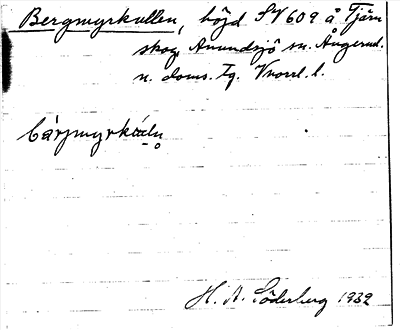 Bergmyrkullen, höjd SV 609 å Tjärn
skog Anundsjö sn. Ångerml.
n. doms. Tg. Vnorrl. l.
bárjmyrkúln
H. A. Söderberg 1932